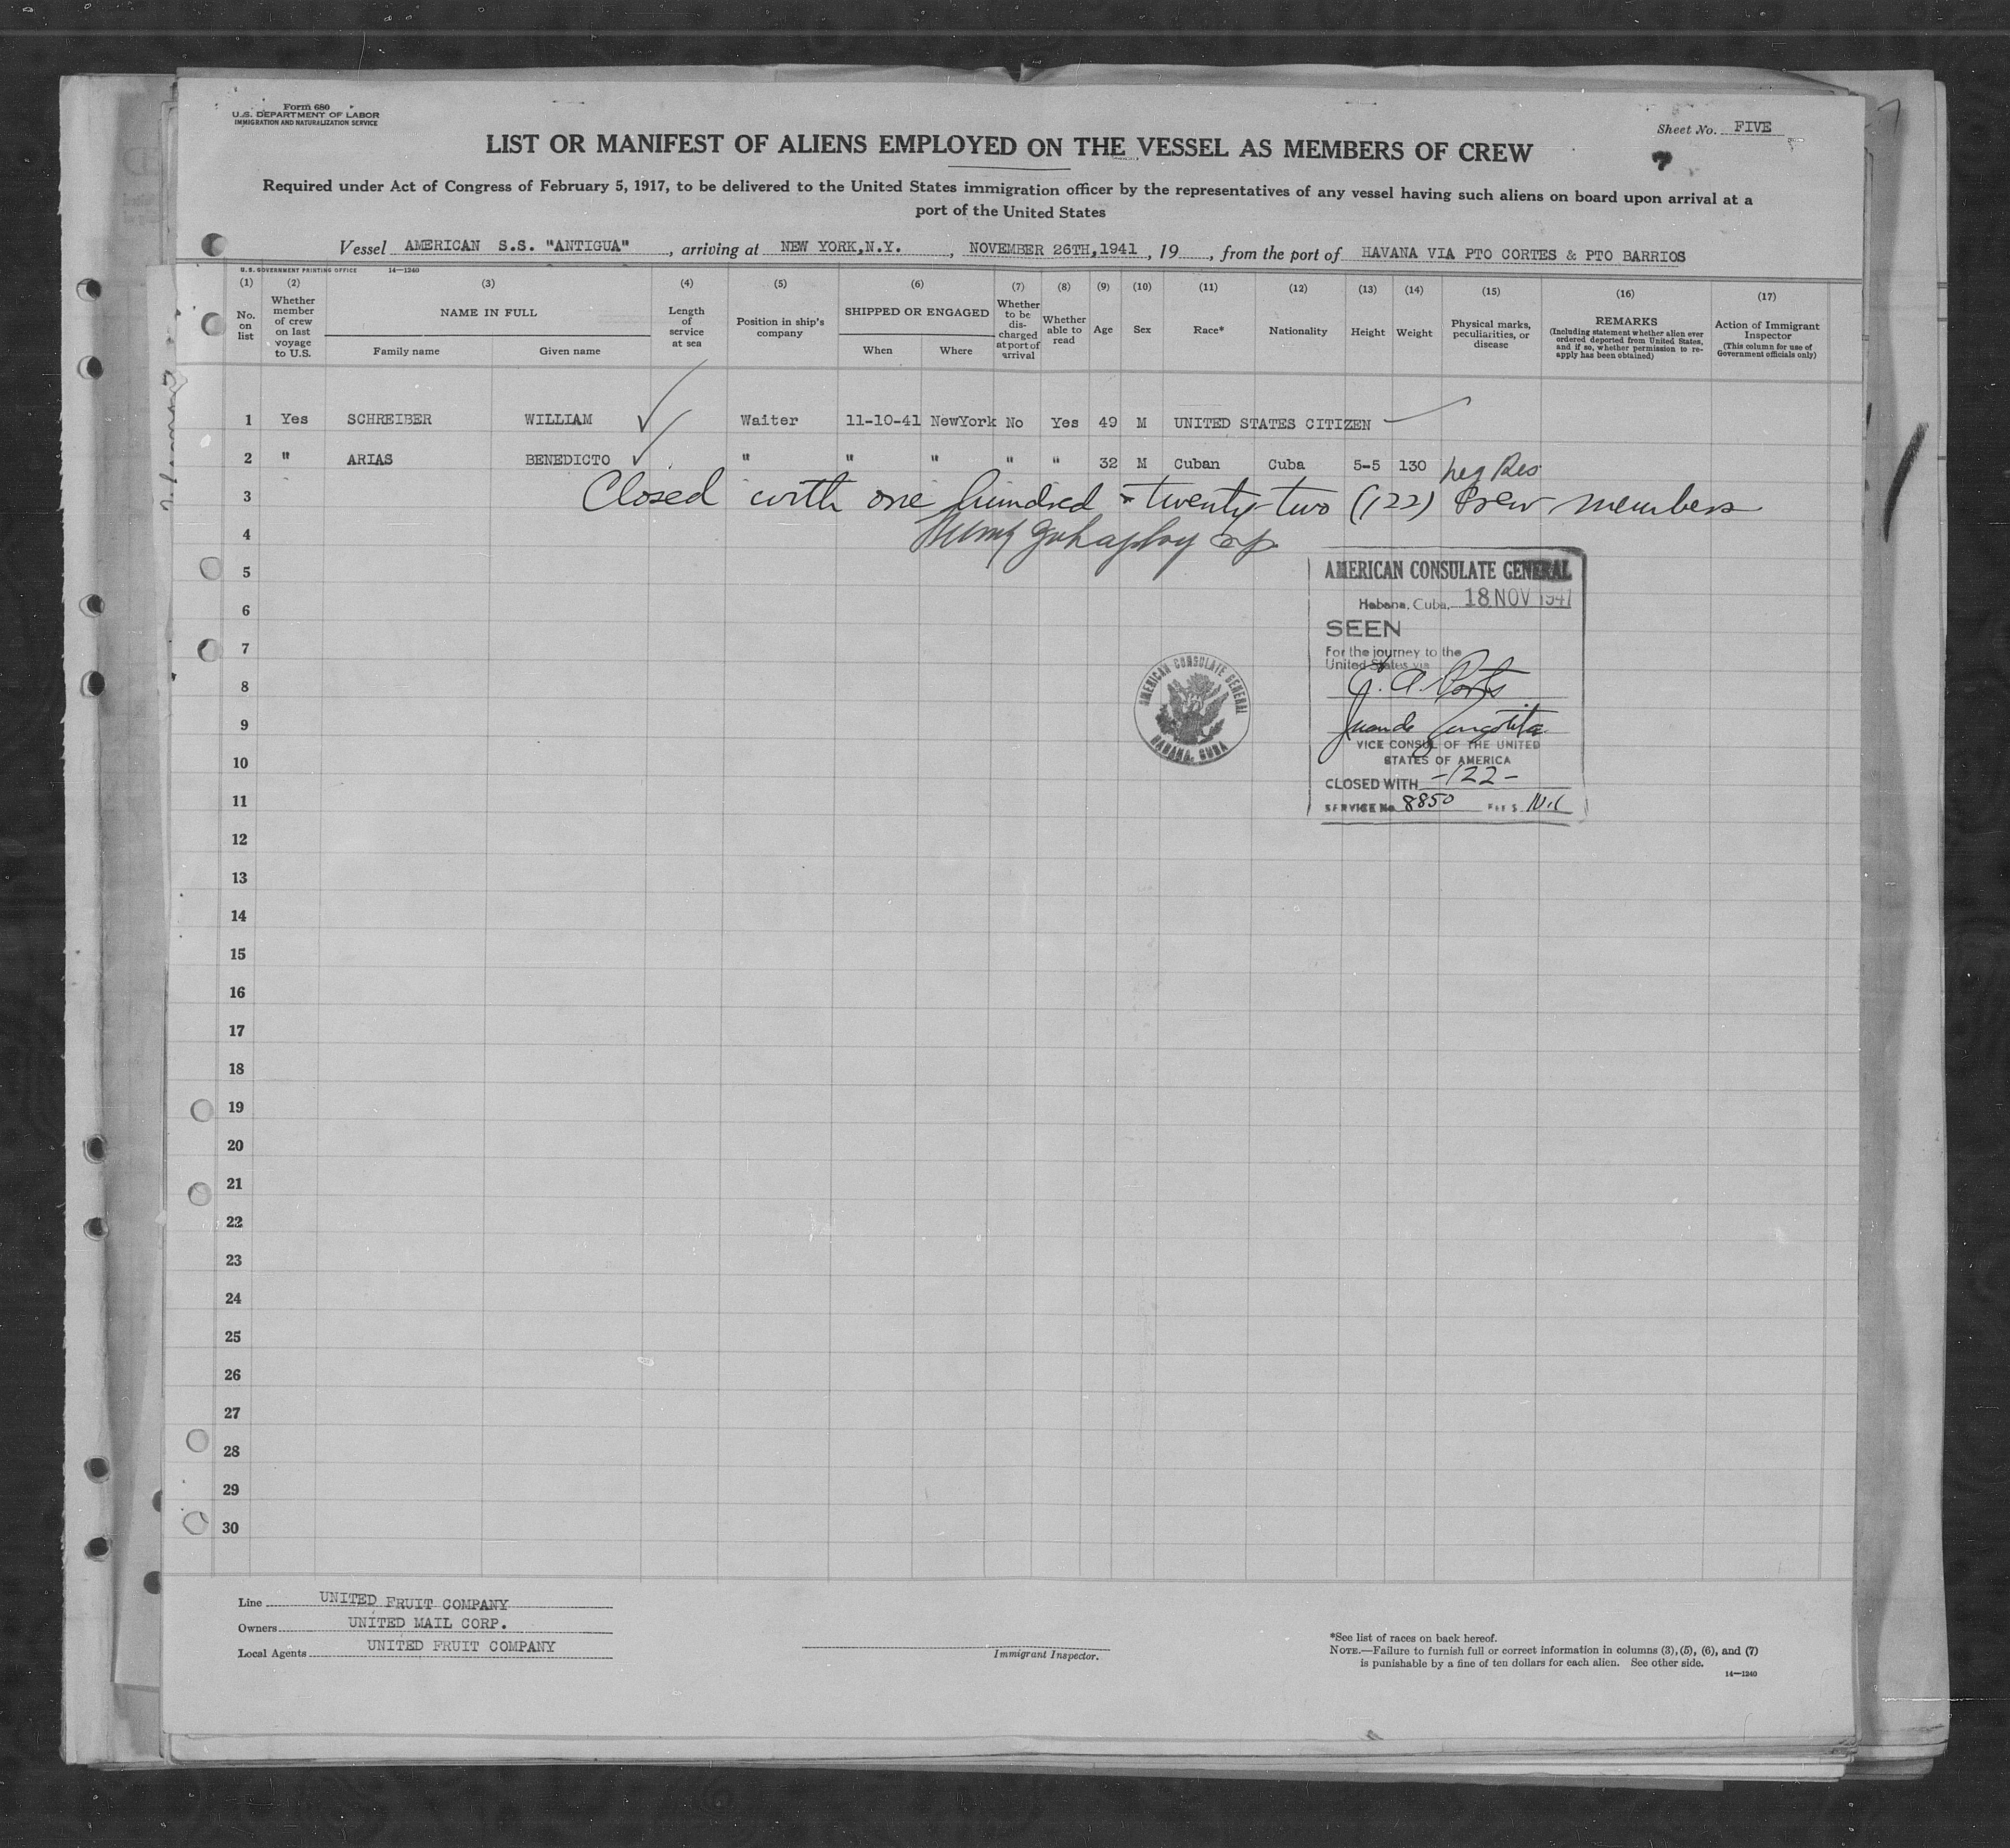 Form 680
U.S. DEPARTMENT OF LABOR
IMMIGRATION AND NATURALIZATION SERVICE
Sheet No. FIVE
LIST OR MANIFEST OF ALIENS EMPLOYED ON THE VESSEL AS MEMBERS OF CREW
Required under Act of Congress of February 5, 1917, to be delivered to the United States immigration officer by the representatives of any vessel having such aliens on board upon arrival at a
port of the United States
Vessel AMERICAN S.S. "ANTIGUA", arriving at NEW YORK,N.Y., NOVEMBER 26TH,1941, 19, from the port of HAVANA VIA PTO CORTES & PTO BARRIOS
U.S. GOVERNMENT PRINTING OFFICE 14—1240
(1) No. on list
(2) Whether member of crew on last voyage to U.S.
(3) NAME IN FULL Family name Given name
(4) Length of service at sea
(5) Position in ship's company
(6) SHIPPED OR ENGAGED When Where
(7) Whether to be discharged at port of arrival
(8) Whether able to read
(9) Age
(10) Sex
(11) Race*
(12) Nationality
(13) Height
(14) Weight
(15) Physical marks, peculiarities, or disease
(16) REMARKS (Including statement whether alien ever ordered deported from United States, and if so, whether permission to re-apply has been obtained)
(17) Action of Immigrant Inspector (This column for use of Government officials only)
1 Yes SCHREIBER WILLIAM Waiter 11-10-41 NewYork No Yes 49 M UNITED STATES CITIZEN
2 " ARIAS BENEDICTO " " " " " 32 M Cuban Cuba 5-5 130 Leg Res
3 Closed with one hundred - twenty-two (122) Crew members
4
5
6
7
8
9
10
11
12
13
14
15
16
17
18
19
20
21
22
23
24
25
26
27
28
29
30
AMERICAN CONSULATE GENERAL
Habana, Cuba, 18 NOV 1941
SEEN
For the journey to the
United States via
VICE CONSUL OF THE UNITED
STATES OF AMERICA
CLOSED WITH -122-
SERVICE No. 8850 FEE $ Nil
AMERICAN CONSULATE GENERAL
HABANA, CUBA
Line UNITED FRUIT COMPANY
Owners UNITED MAIL CORP.
Local Agents UNITED FRUIT COMPANY
Immigrant Inspector.
*See list of races on back hereof.
NOTE.—Failure to furnish full or correct information in columns (3), (5), (6), and (7)
is punishable by a fine of ten dollars for each alien. See other side.
14—1240